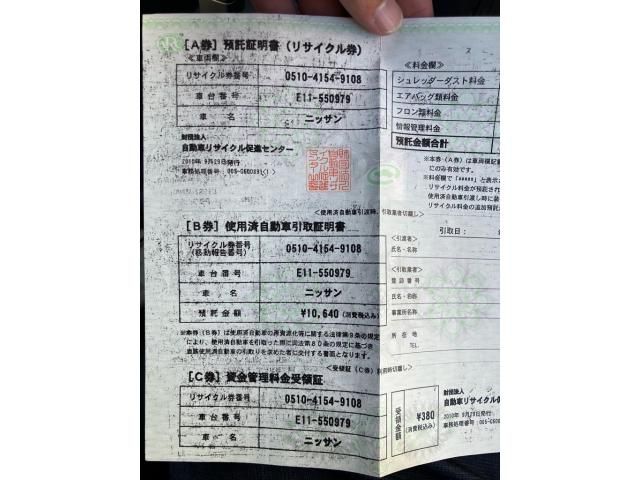 [A券] 預託証明書 (リサイクル券)
≪車両欄≫
リサイクル券番号 0510-4154-9108
車台番号 E11-550979
車 名 ニッサン
財団法人
自動車リサイクル促進センター
2010年 9月29日発行
≪料金欄≫
シュレッダーダスト料金
エアバッグ類料金
フロン類料金
情報管理料金
預託金額合計
※本券(A券)は車両欄記載
にのみ有効です。
※料金欄で「*****」と表示
リサイクル料金が預託され
使用済自動車引渡し時に装
リサイクル料金の追加預託
<使用済自動車引渡時、引取業者切離し>
[B券] 使用済自動車引取証明書
リサイクル券番号
(移動報告番号) 0510-4154-9108
車台番号 E11-550979
車 名 ニッサン
預託金額 ¥10,640 (消費税込み)
※本券(B券)は使用済自動車の再資源化等に関する法律第9条の規定
により、使用済自動車を引取った際に同法第80条の規定に基づき
当該使用済自動車の引取りを求めた者に交付する書面となります。
引取日:
<引渡者>
氏名・名称
<引取業者>
登録番号
氏名・名称
事業所名称
所在地
TEL.
<受領証(C券)利用時切離し>
[C券] 資金管理料金受領証
リサイクル券番号 0510-4154-9108
車台番号 E11-550979
車 名 ニッサン
受領金額
¥380
(消費税込み)
財団法人
自動車リサイクル促
2010年 9月29日発行